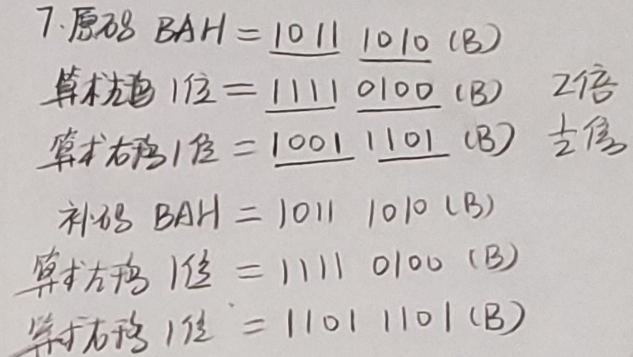 7.原码 BAH = 1011 1010 (B)
算术左移 1位 = 1111 0100 (B) 2倍
算术右移 1位 = 1001 1101 (B) 1/2倍
补码 BAH = 1011 1010 (B)
算术左移 1位 = 1111 0100 (B)
算术右移 1位 = 1101 1101 (B)